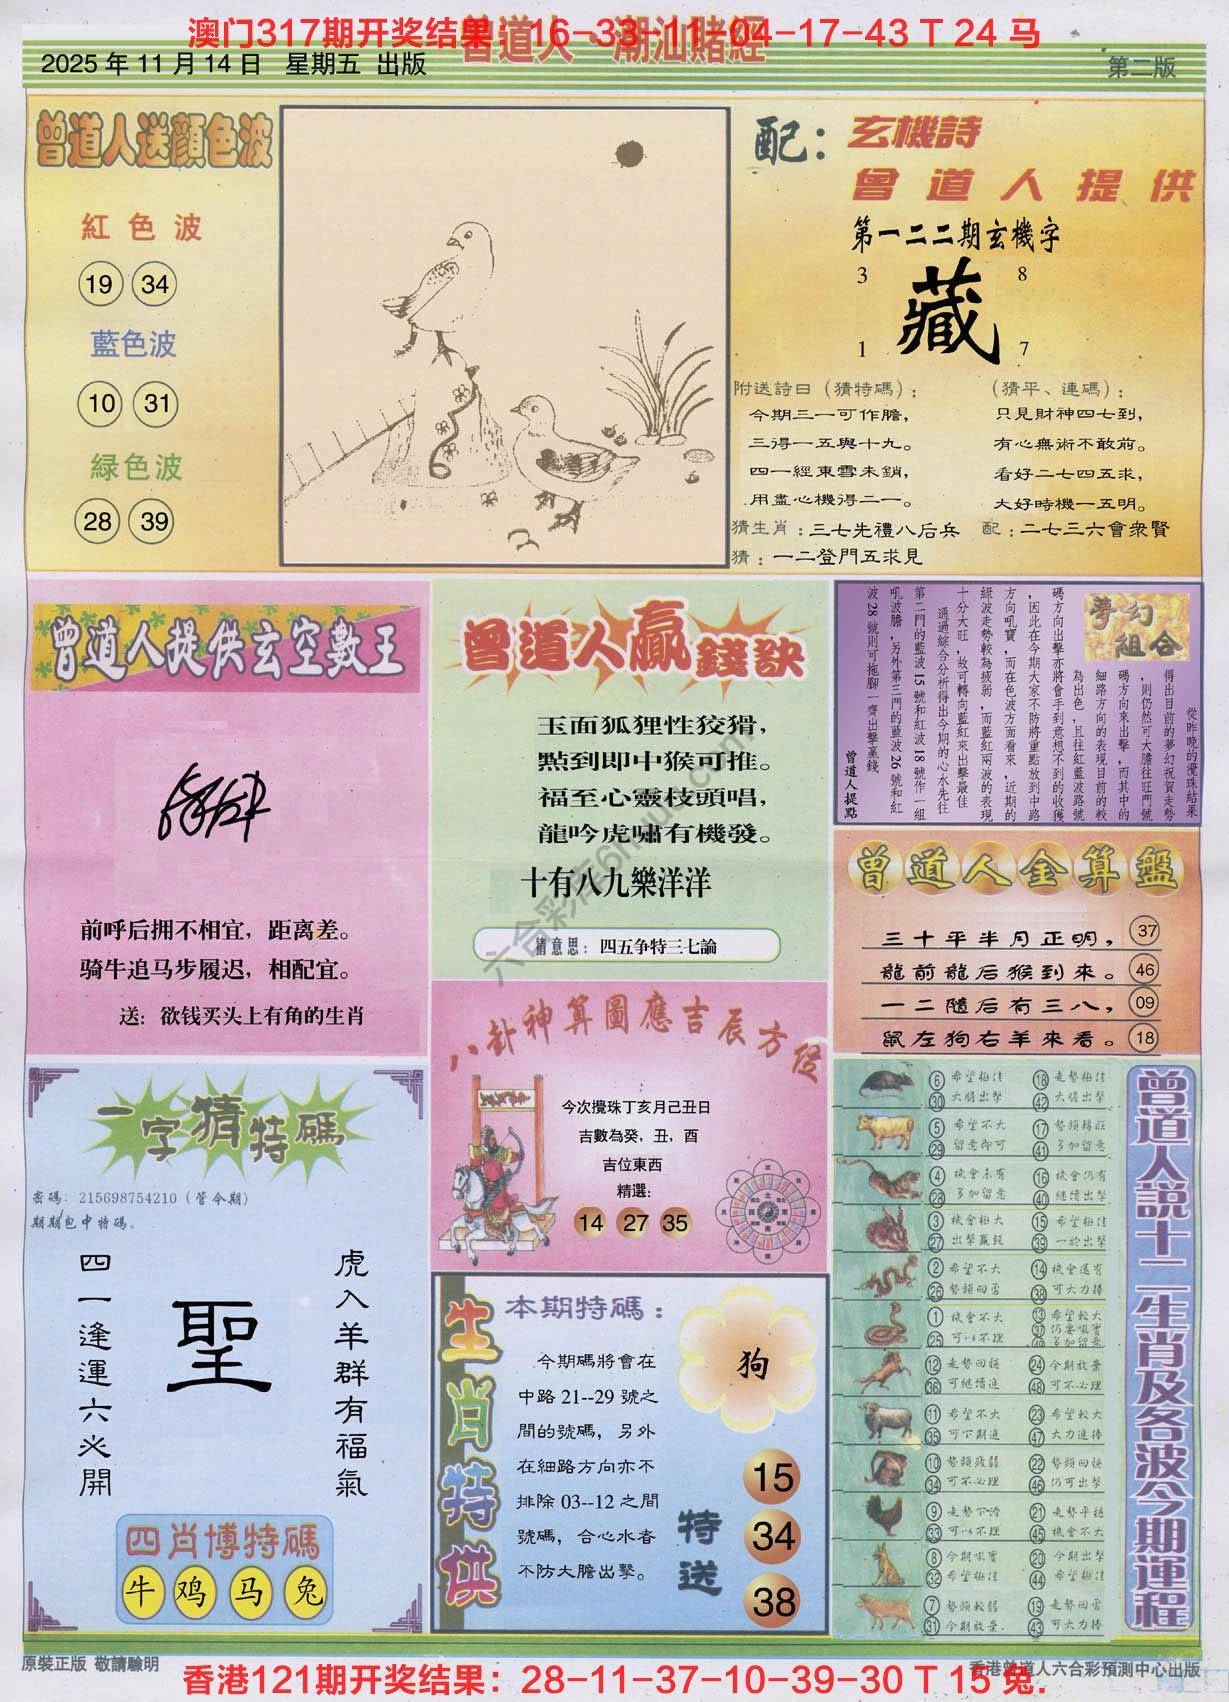 澳门317期开奖结果：16-33-11-04-17-43 T 24 马
曾道人·潮汕賭經
2025 年 11 月 14 日 星期五 出版
第二版
曾道人送顏色波
紅色波
19 34
藍色波
10 31
緑色波
28 39
配：玄機詩
曾道人提供
第一二二期玄機字
3 8
藏
1 7
附送詩曰（猜特碼）：
今期三一可作膽，
三得一五與十九。
四一經東雪未銷，
用盡心機得二一。
（猜平、連碼）：
只見財神四七到，
有心無術不敢前。
看好二七四五求，
大好時機一五明。
猜生肖：三七先禮八后兵 配：二七三六會衆賢
猜：一二登門五求見
曾道人提供玄空數王
前呼后拥不相宜，距离差。
骑牛追马步履迟，相配宜。
送：欲钱买头上有角的生肖
曾道人贏錢訣
玉面狐狸性狡猾，
點到即中猴可推。
福至心靈枝頭唱，
龍吟虎嘯有機發。
十有八九樂洋洋
猜意思：四五争特三七論
夢幻組合
從昨晚的攪珠結果
得出目前的夢幻祝賀走勢
，則仍然可大膽往旺門號
碼方向來出擊，而其中的
細路方向的表現目前的較
為出色，且往紅藍波路號
碼方向出擊亦將會手到意想不到的收獲
，因此在今期大家不防將重點放到中路
方向吼寶，而在色波方面看來，近期的
綠波走勢較為疲弱，而藍紅兩波的表現
十分大旺，故可轉向藍紅來出擊最佳
通過綜合分析得出今期的心水先往
第二門的藍波 15 號和紅波 18 號作一組
吼波膽，另外第三門的藍波 26 號和紅
波 28 號則可拖腳一齊出擊贏錢
曾道人提點
曾道人金算盤
三十平半月正明， 37
龍前龍后猴到來。 46
一二隨后有三八， 09
鼠左狗右羊來看。 18
八卦神算圖應吉辰方位
今次攪珠丁亥月己丑日
吉數為癸，丑，酉
吉位東西
精選：
14 27 35
一字猜特碼
密碼：215698754210（管令期）
期期包中特碼。
虎入羊群有福氣
聖
四一逢運六必開
四肖博特碼
牛 鸡 马 兔
生肖特供
本期特碼：
今期碼將會在
中路 21--29 號之
間的號碼，另外
在細路方向亦不
排除 03--12 之間
號碼，合心水者
不防大膽出擊。
狗
特送
15
34
38
曾道人説十二生肖及各波今期運程
6 希望極佳 18 走勢極佳
30 大膽出擊 42 大膽出擊
5 希望不大 17 勢頭轉旺
29 留意即可 41 多加留意
4 機會未有 16 機會仍有
28 多加留意 40 繼續出擊
3 機會極大 15 希望極佳
27 出擊贏錢 39 一於出擊
2 希望不大 14 機會還有
26 勢頭回勇 38 可大力捧
1 機會不大 13 希望較大
25 可以不理
12 走勢回穩 24 今期放棄
36 可繼續追 48 可不必理
11 希望不大 23 希望較大
35 可下期追 47 大力追捧
10 勢頭疲弱 22 勢頭回穩
34 可不必理 46 仍可出擊
9 走勢下滑 21 走勢平穩
33 可以不理 45 機會不大
8 今期吼寶 20 今期出擊
32 希望極佳 44 希望極佳
7 勢頭較弱 19 走勢回勇
31 今期放棄 43 可大力捧
原裝正版 敬請驗明
香港曾道人六合彩預測中心出版
香港121期开奖结果：28-11-37-10-39-30 T 15 兔.